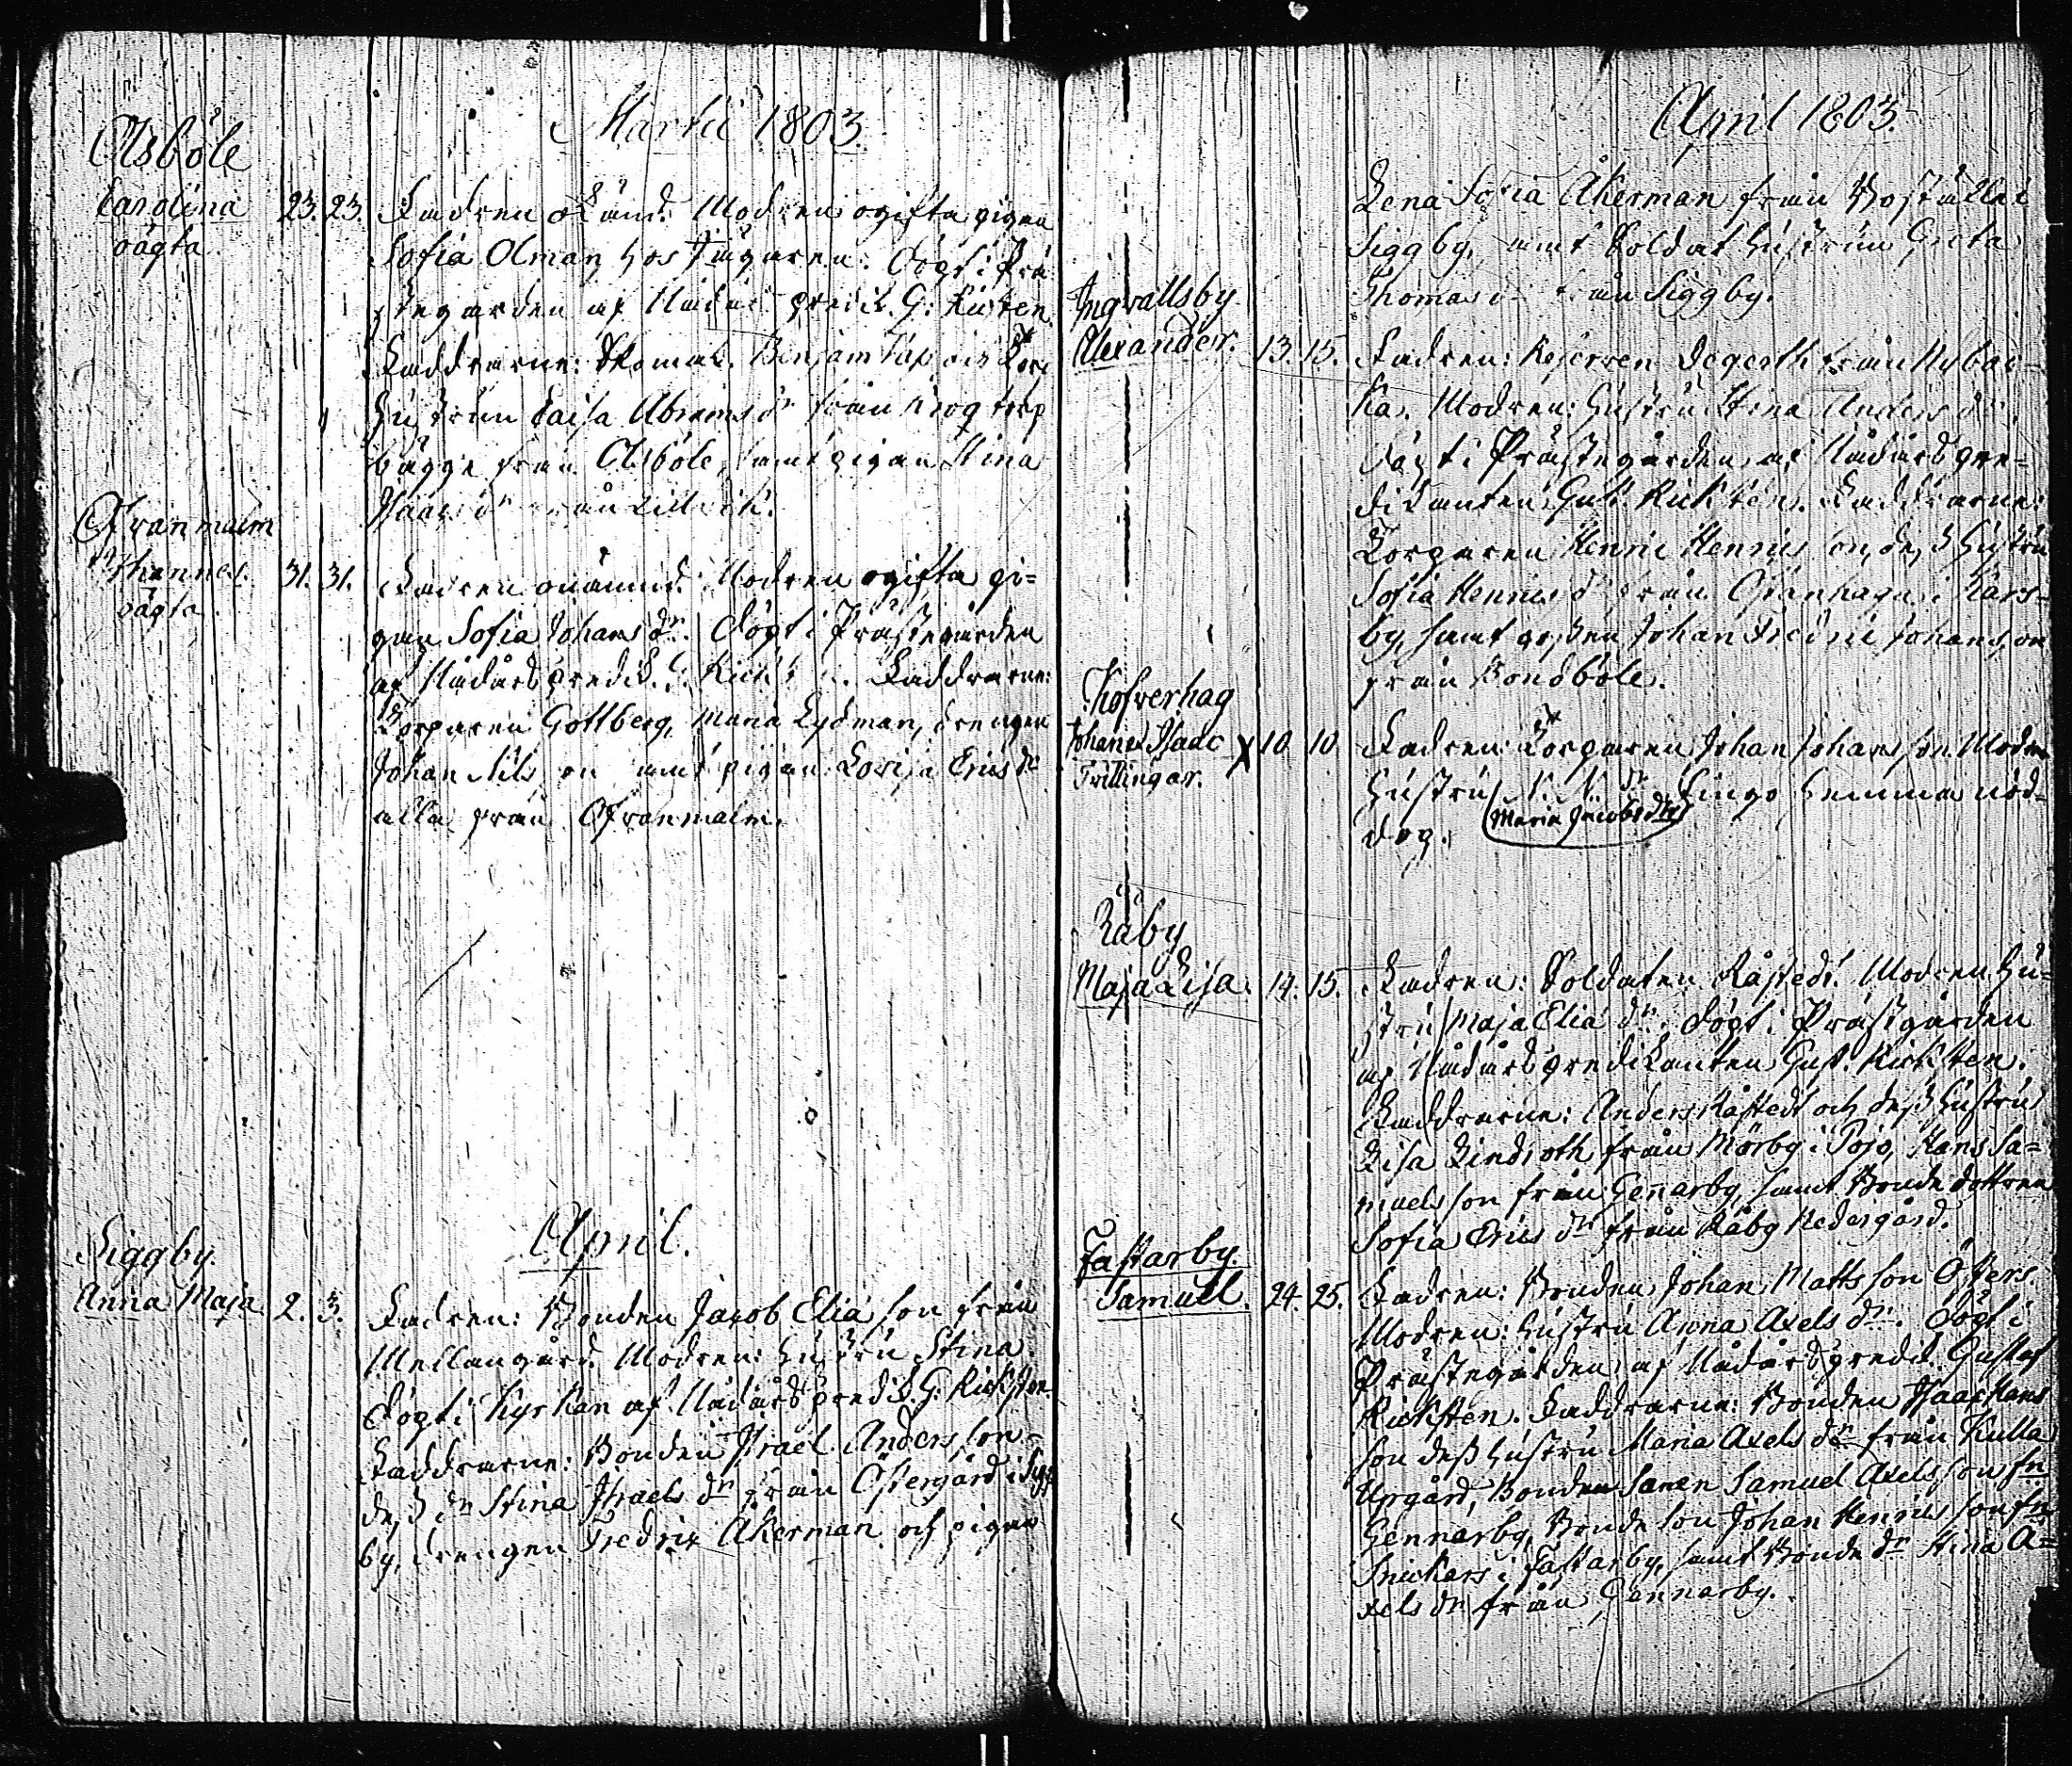 Martii 1803.
Olsböle
Carolina 23. 23. Fadren okänd. Modren ogifta pigan
oägta. Sofia Olman hos Tingaren. Döpt i Prä
stegården af Nådårs predik. G. Ricksten.
Faddrarne: Skomak. Benjam och Torp
Hustrun Caisa Abrams dr från Krogtorp
bägge från Olsböle, samt pigan Stina
Isaacs dr från
Ofvanmalm
Johannes. 31. 31. Fadren onämnd. Modren ogifta pi=
oägta. gan Sofia Johans dr. Döpt i Prästegården
af Nådårs predik. G. Ricksten. Faddrarne:
Torparen Gottberg, Maria Lydman, drengen
Johan Nilsson samt pigan Lovisa Erics dr
alla från Ofvanmalm.
April.
Siggby.
Anna Maja 2. 3. Fadren: Bonden Jacob Elia son från
Mellangård. Modren: Hustru Stina
Döpt i Kyrkan af Nådårs predik. G. Ricksten
Faddrarne: Bonden Israel Andersson
dess dr Stina Israels dr från Östergård i Sigg
by, drengen Fredric Åkerman och pigan
April 1803.
Lena Sofia Åkerman från Boställe i
Siggby, samt Soldat Hustrun Greta
Thomas dr från Siggby.
Ingvallsby
Alexander. 13. 15. Fadren: Reserven Degerth från Nybac-
ka. Modren: Hustru Stina Anders dr.
Döpt i Prästegården af Nådårs pre-
dikanten Gust. Ricksten. Faddrarne:
Torparen Henric Henricsson, dess Hustru
Sofia Henrics dr från Ofvanhagn i Kårs-
by, samt gossen Johan Fredric Johansson
från Bondböle.
Kofverhag
Johan et Isaac X 10 10 Fadren: Torparen Johan Johansson. Modren
Trillingar. Hustru N. N. dr Fingo hemma nöd-
(Maria Jacobs dtr)
dop.
Råby
Maja Lisa. 14. 15. Fadren: Soldaten Råstedt. Modren Hu-
stru Maja Elia dr. Döpt i Prästgården
af Nådårs predikanten Gust. Ricksten.
Faddrarne: Anders Råstedt och dess Hustru
Lisa Lindroth från Mörby i Pojo, Hans Sa=
muelsson från Gennarby, samt Bonde dottren
Sofia Erics dr från Råby Nedergård.
Fastarby.
Samuel. 24. 25. Fadren: Bonden Johan Mattsson Öfvers.
Modren: Hustru Anna Axels dr. Döpt i
Prästegården af Nådårs predik. Gustaf
Ricksten. Faddrarne: Bonden Isaac Hans
son dess Hustru Maria Axels dr från Kulla
Uppgård, Bonden Samuel Axelsson fn
Gennarby, Bonde son Johan Henricsson fn
Snickars i Fastarby, samt Bonde dr Stina A=
xels dr från Gennarby.